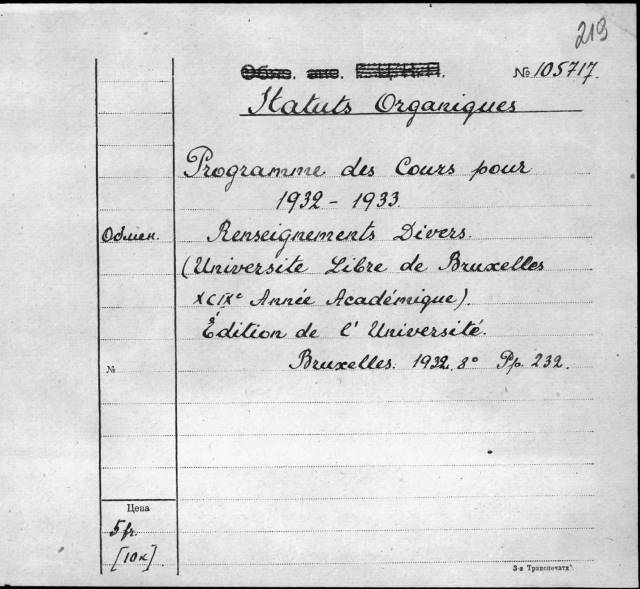 219
№ 105717.
Statuts Organiques
Programme des Cours pour
1932 - 1933.
Обмен.
Renseignements Divers.
(Universite Libre de Bruxelles
XCIXe Année Académique).
Édition de l'Université.
Bruxelles. 1932. 8° Pp. 232.
№
Цена
5 fr.
[10к]
3-я Транспечать